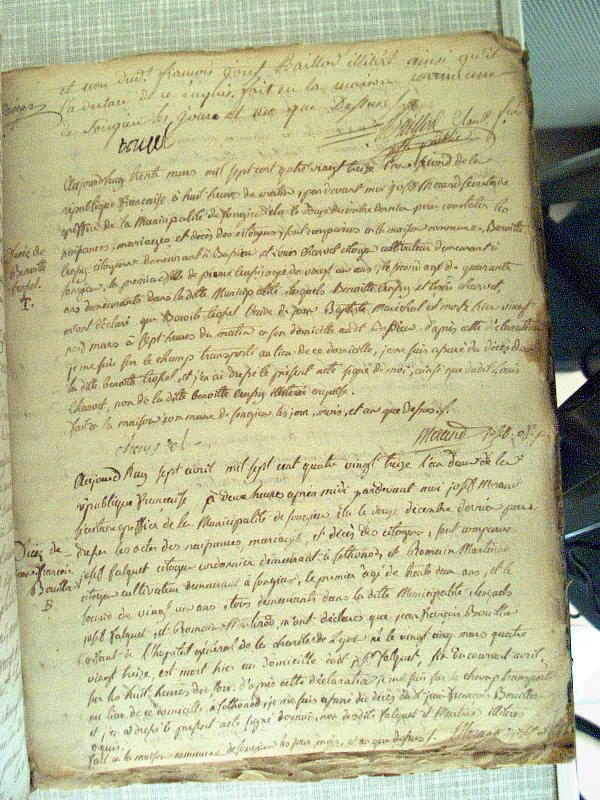 et non dud. françois joseph Baillod illitéré ainsi qu'il
l'a declaré de ce enquis fait en la maison commune
de Songieu les jours et an que dessus
Décès de
Benoite
Aujourdhuy trente mars mil sept cent quatre vingt treize l'an second de la
république française à huit heures du matin, pardevant moi joseph Morand secrétaire
greffier de la Municipalité de songieu élu le douze décembre dernier pour constater les
naissances, mariages et décès des citoyens, sont comparus en la maison commune, Benoite
citoyenne demeurant à et Louis Charvet citoyen cultivateur demeurant à
songieu, la première fille de pierre agée de vingt un ans, le second agé de quarante
ans demeurants dans la ditte Municipalité, lesquels Benoitte et Louis Charvet,
m'ont déclaré que Benoite veuve de jean Baptiste Maréchal est morte hier vingt
neuf mars à sept heures du matin en son domicile audt d'après cette déclaration
je me suis sur le champ transporté au lieu de ce domicile, je me suis assuré du décès de
la ditte benoitte et j'en ai dressé le présent acte signé de moi, ainsi que dudit Louis
Charvet, non de la ditte benoitte illitérée enquise.
fait en la maison commune de songieu les jour, mois, et an que dessus.
Morand
Aujourd'huy sept avril mil sept cent quatre vingt treize l'an deux de la
république française à deux heures après midi pardevant moi joseph Morand
secrétaire greffier de la Municipalité de songieu élu le douze décembre dernier pour
Décès de
jean françois
Bouilloz
B
dresser les actes des naissances, mariages, et décès des citoyens, sont comparus
joseph falquet citoyen cordonnier demeurant à Lothonod, et Romain Martinod
citoyen cultivateur demeurant à songieu, le premier agé de trente deux ans, et le
second de vingt un ans, tous demeurants dans la ditte Municipalité, lesquels
joseph falquet, et Romain Martinod, m'ont déclarés que jean françois Bouilloz
enfant de l'hopital général de la charité de Lyon né le vingt cinq mars quatre
vingt treize est mort hier au domicile dudt joseph falquet, six du courant avril,
sur les huit heures du soir. d'après cette déclaration je me suis sur le champ transporté
au lieu de ce domicile à Lothonod, je me suis assuré du décès dudt jean françois Bouilloz
et j'en ai dressé le présent acte signé de moi, non desdits falquet et Martinod illitérés
enquis.
fait en la maison commune de songieu les jour, mois, et an que dessus.